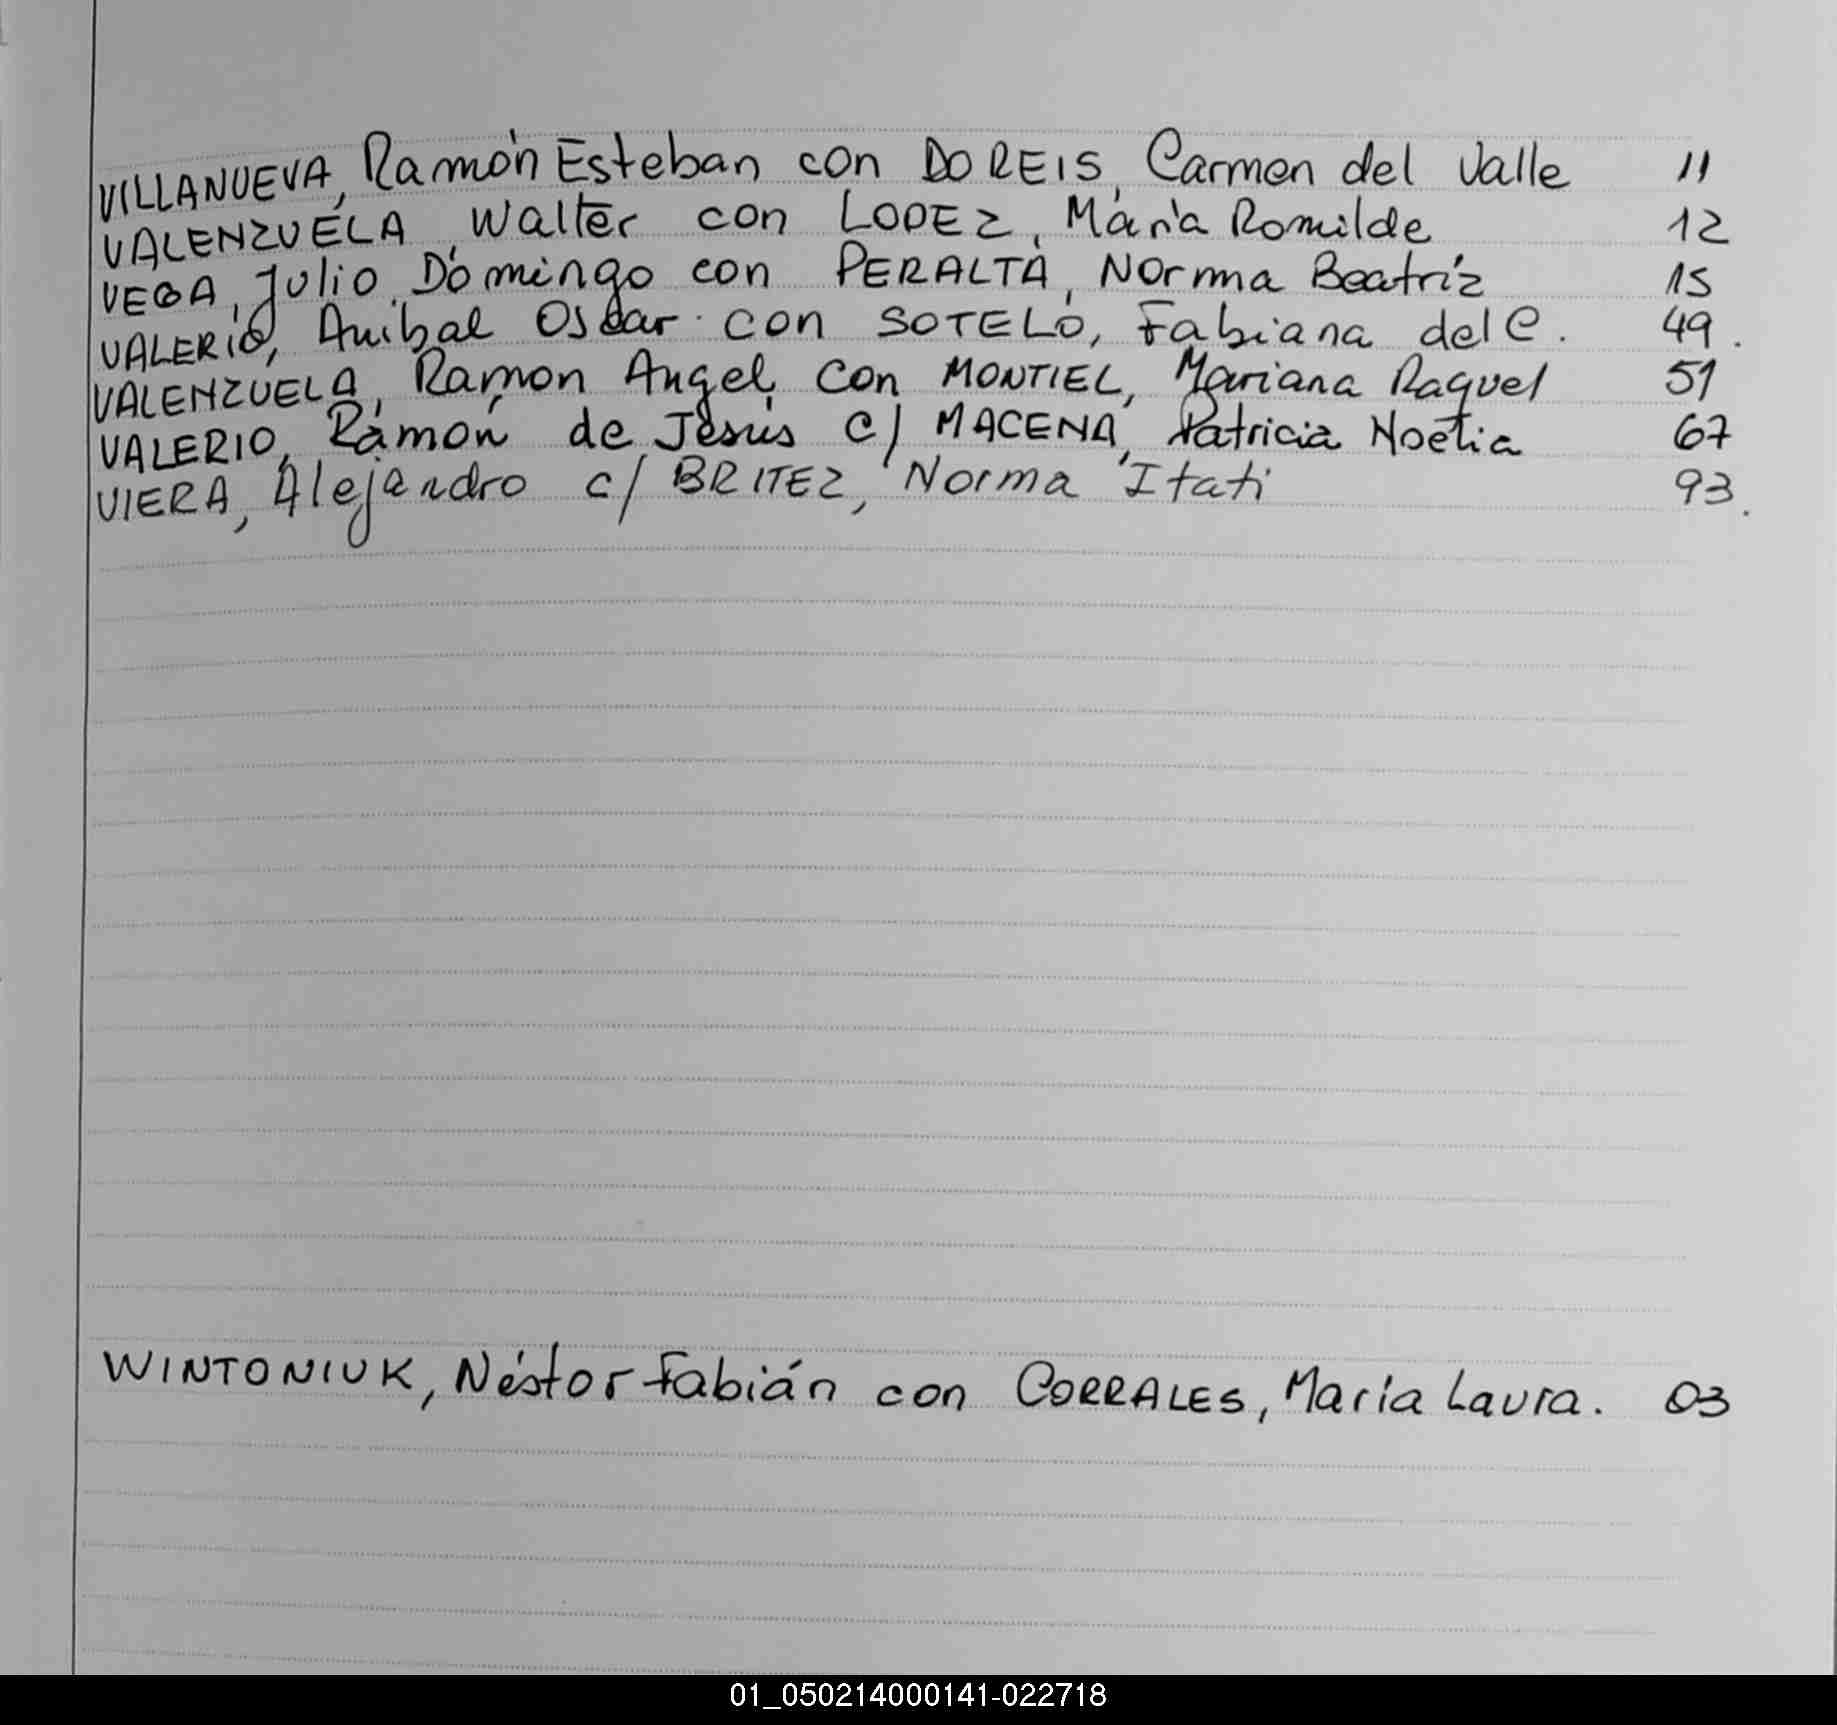 VILLANUEVA, Ramón Esteban con DO REIS, Carmen del Valle 11
VALENZUELA, Walter con LOPEZ, María Romilde 12
VEGA, Julio Domingo con PERALTA, Norma Beatríz 15
VALERIO, Anibal Oscar con SOTELO, Fabiana del C. 49.
VALENZUELA, Ramon Angel con MONTIEL, Mariana Raquel 51
VALERIO, Ramón de Jesús c/ MACENA, Patricia Noelia 67
VIERA, Alejandro c/ BRITEZ, Norma Itati 93.
WINTONIUK, Néstor Fabián con CORRALES, María Laura. 03
01_050214000141-022718